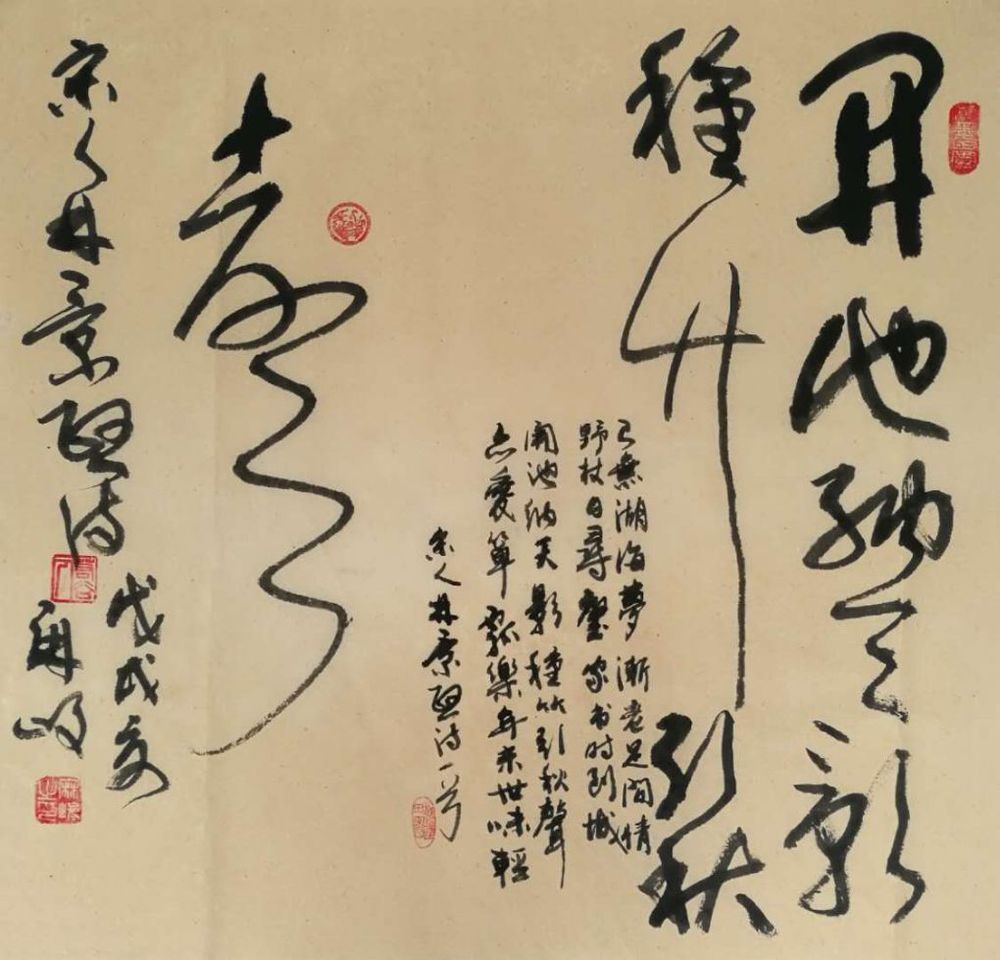 開池纳天影
種竹引秋
聲
已無湖海夢漸老足閒情
野杖日尋壑家书时到城
開池纳天影種竹引秋聲
亦愛箪瓢樂年来世味輕
宋人林景熙诗一首
宋人林景熙诗
戊戌夏